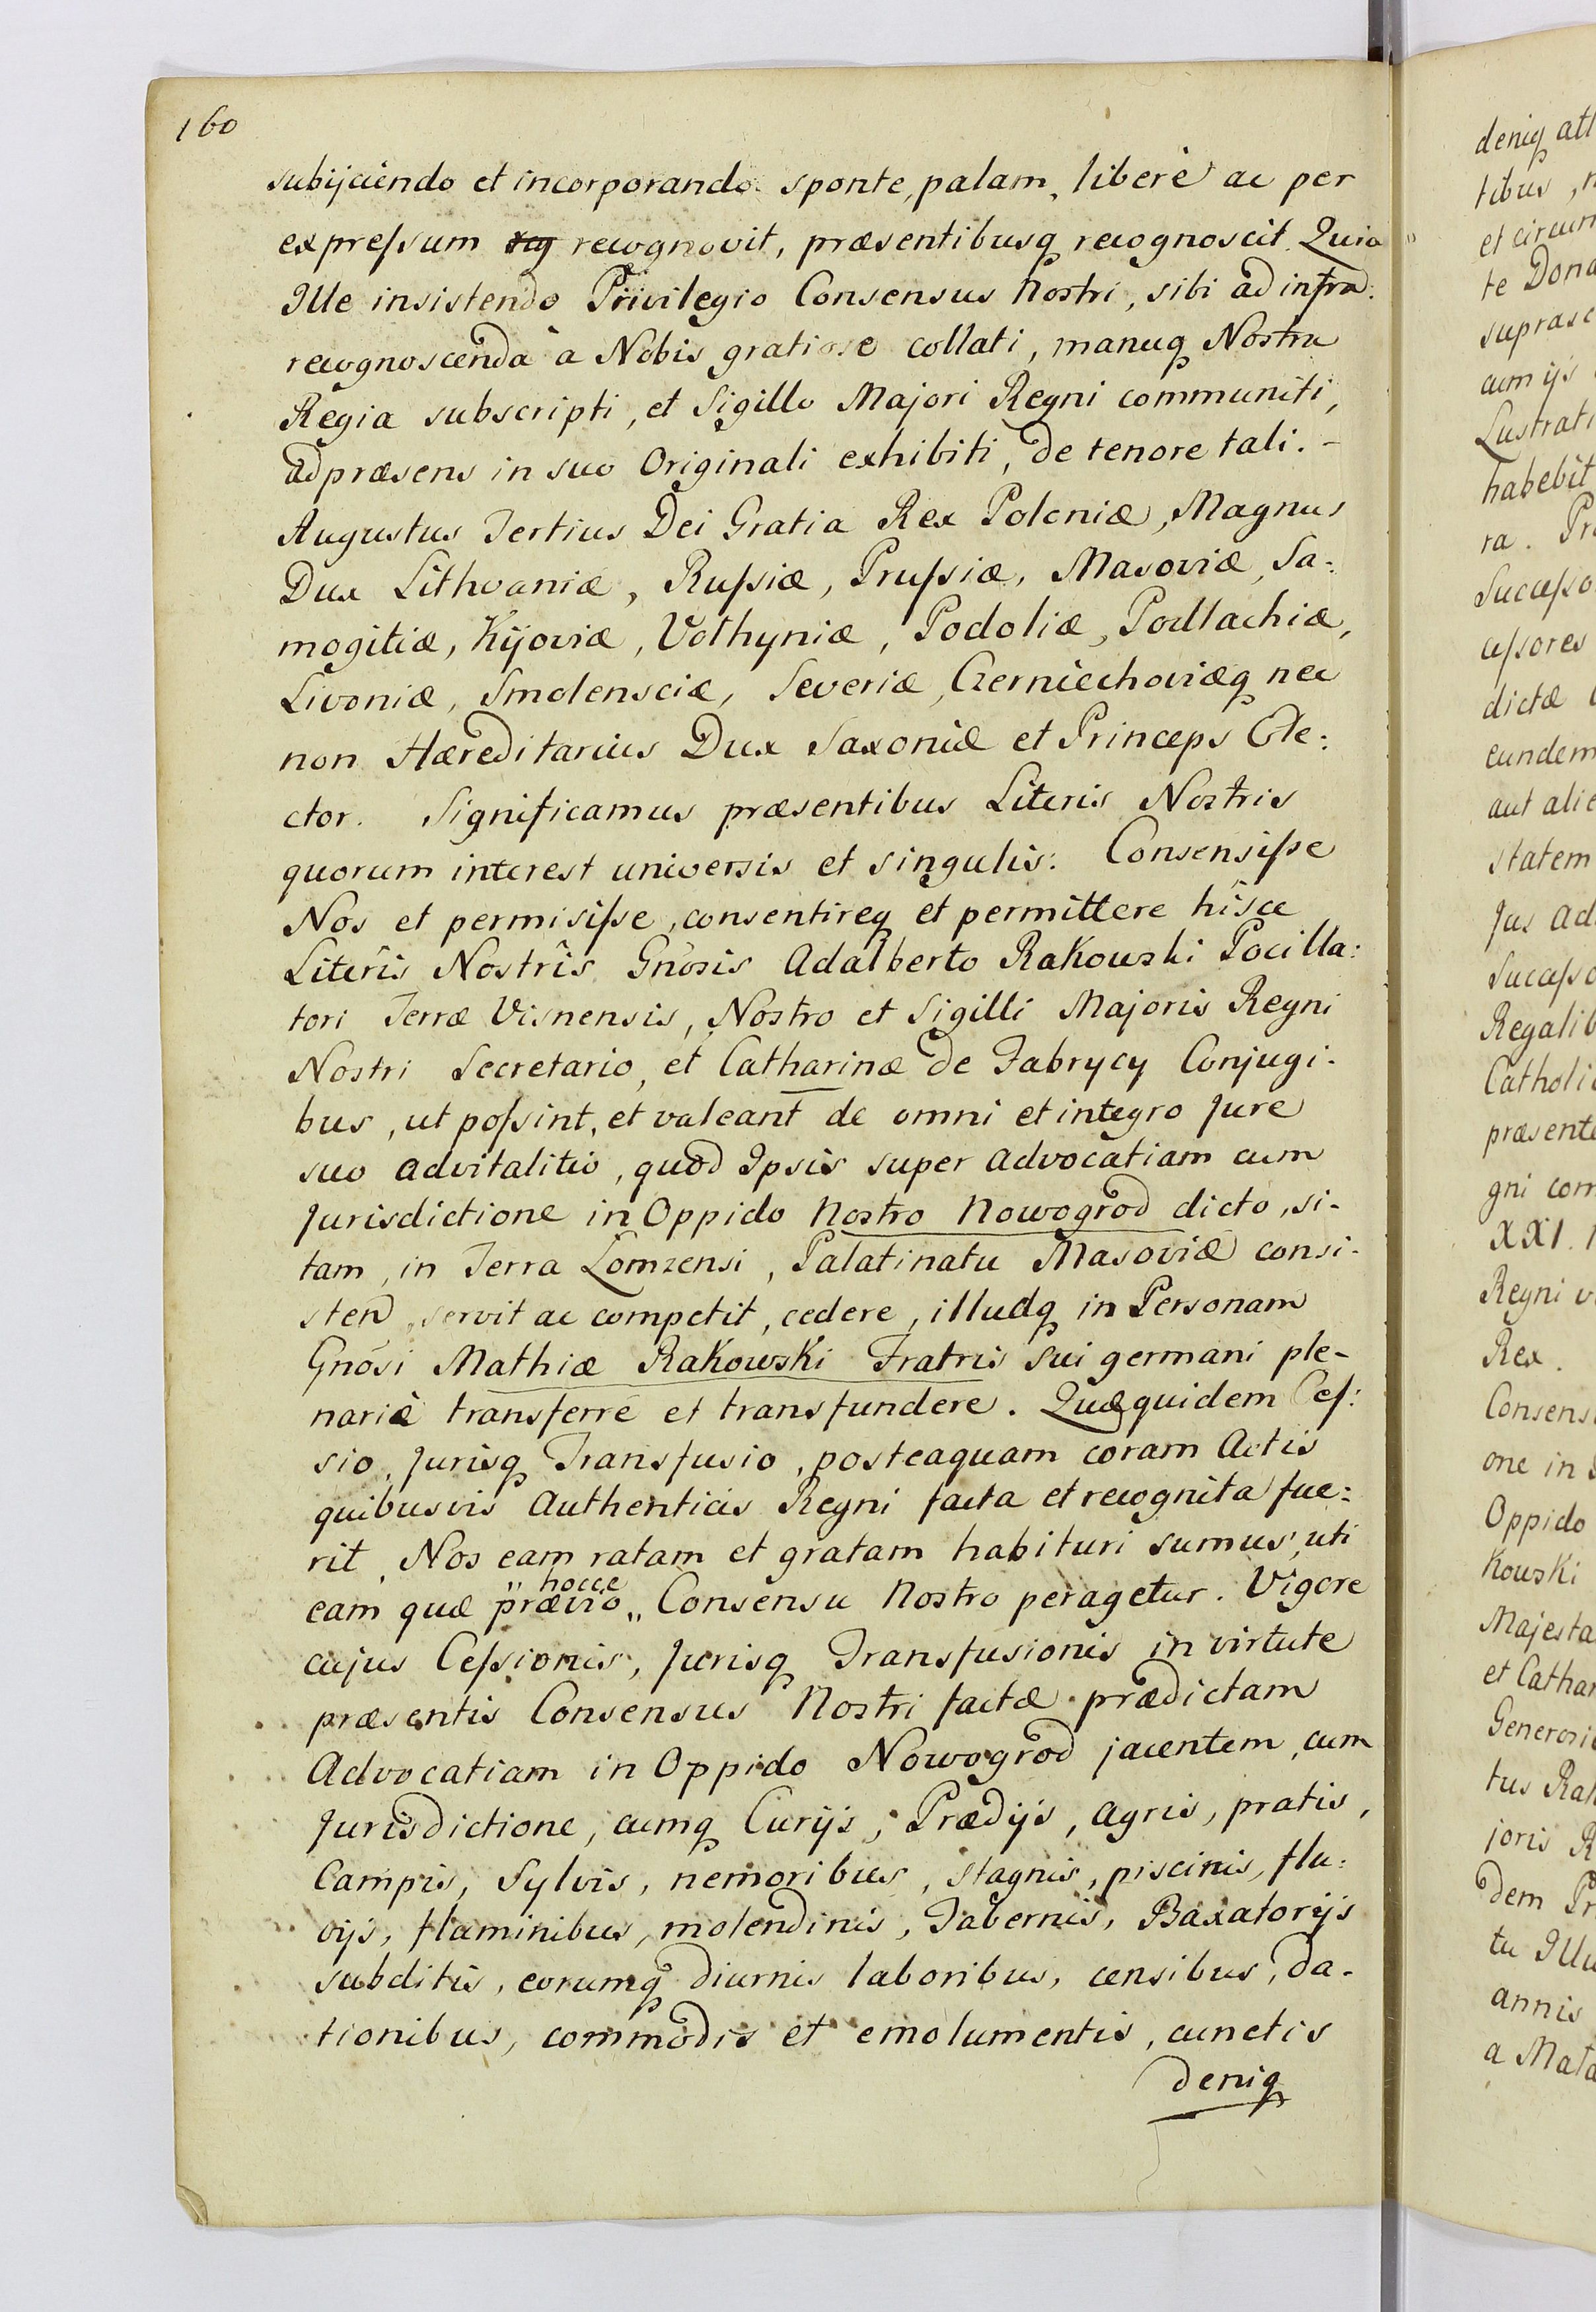 160
subijciendo et incorporando sponte, palam, liberè ac per
expreſsum recognovit, præsentibusq recognoscit. Quia
Ille insistendo Privilegio Consensus Nostri, sibi ad infra:
recognoscenda à Nobis gratiose collati, manuq Nostra
Regia subscripti, et Sigillo Majori Regni communiti,
ad præsens in suo Originali exhibiti, de tenore tali. -
Augustus Tertius Dei Gratia Rex Poloniæ, Magnus
Dux Lithvaniæ, Ruſsiæ, Pruſsiæ, Masoviæ, Sa:
mogitiæ, Kijoviæ, Volhyniæ, Podoliæ, Podlachiæ,
Livoniæ, Smolensciæ, Severiæ, Czerniechoviæq nec
non Hæreditarius Dux Saxoniæ et Princeps Ele:
ctor. Significamus præsentibus Literis Nostris
quorum interest universis et singulis: Consensiſse
Nos et permisiſse, consentireq et permittere hîsce
Literîs Nostrîs, Gnosis Adalberto Rakowski Pocilla:
tori Terræ Visnensis, Nostro et Sigilli Majoris Regni
Nostri Secretario, et Catharinæ de Fabrycy Conjugi-
bus, ut poſsint, et valeant de omni et integro Jure
suo advitalitio, quod Ipsis super Advocatiam cum
Jurisdictione in Oppido Nostro Nowogrod dicto, si-
tam, in Terra Lomzensi, Palatinatu Masoviæ consi-
sten, servit ac competit, cedere, illudq in Personam
Gnosi Mathiæ Rakowski Fratris sui germani ple-
nariè transferre et transfundere. Quæquidem Ceſ:
sio, Jurisq Transfusio, posteaquam coram Actis
quibusvis Authenticis Regni facta et recognita fue:
rit, Nos eam ratam et gratam habituri sumus, uti
eam quæ prævio „ hocce „ Consensu Nostro peragetur. Vigore
cujus Ceſsionis, Jurisq Transfusionis in virtute
præsentis Consensus Nostri factæ prædictam
Advocatiam in Oppido Nowogrod jacentem, cum
Jurisdictione, cumq Curijs, Prædijs, agris, pratis,
Campis, Sylvis, nemoribus, stagnis, piscinis, flu:
vijs, fluminibus, molendinis, Tabernis, Baxatorijs
subditis, eorumq diurnis laboribus, censibus, da-
tionibus, commodis et emolumentis, cunctis
deniq
deniq att
tibus,
et circum
te Dona
suprasc
cum ijs
Lustrati
habebit
ra. Pr
Succeſso
ceſsores
dictæ
eundem
aut alie
statem
Jus ad
Succeſso
Regalib
Catholi
præsente
gni com
XXI.
Regni
Rex.
Consens
one in
Oppido
kowski
Majesta
et Cathar
Generosi
tus Rak
joris R
dem Pr
tu Illu
annis
a Mata